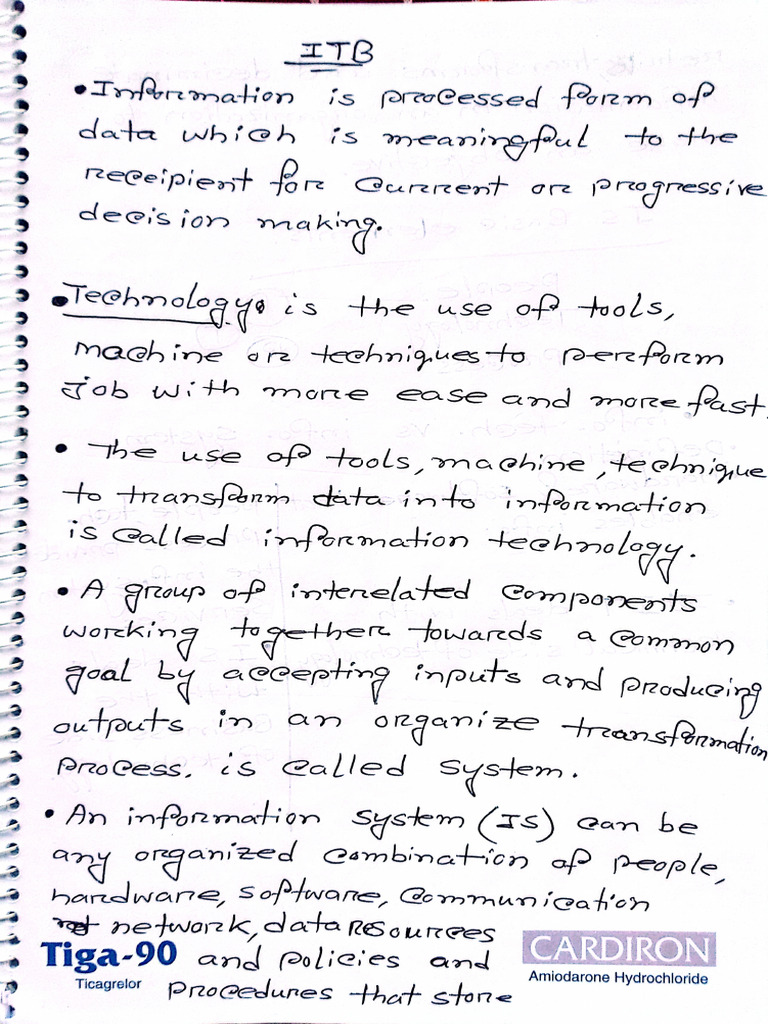 ITB
• Information is processed form of
data which is meaningful to the
receipient for current or progressive
decision making.
• Technology: is the use of tools,
machine or techniques to perform
job with more ease and more fast.
• The use of tools, machine, technique
to transform data into information
is called information technology.
• A group of interelated components
working together towards a common
goal by accepting inputs and producing
outputs in an organize transformation
process. is called system.
• An information system (IS) can be
any organized combination of people,
hardware, software, communication
network, data resources
and policies and
procedures that store
Tiga-90
Ticagrelor
CARDIRON
Amiodarone Hydrochloride